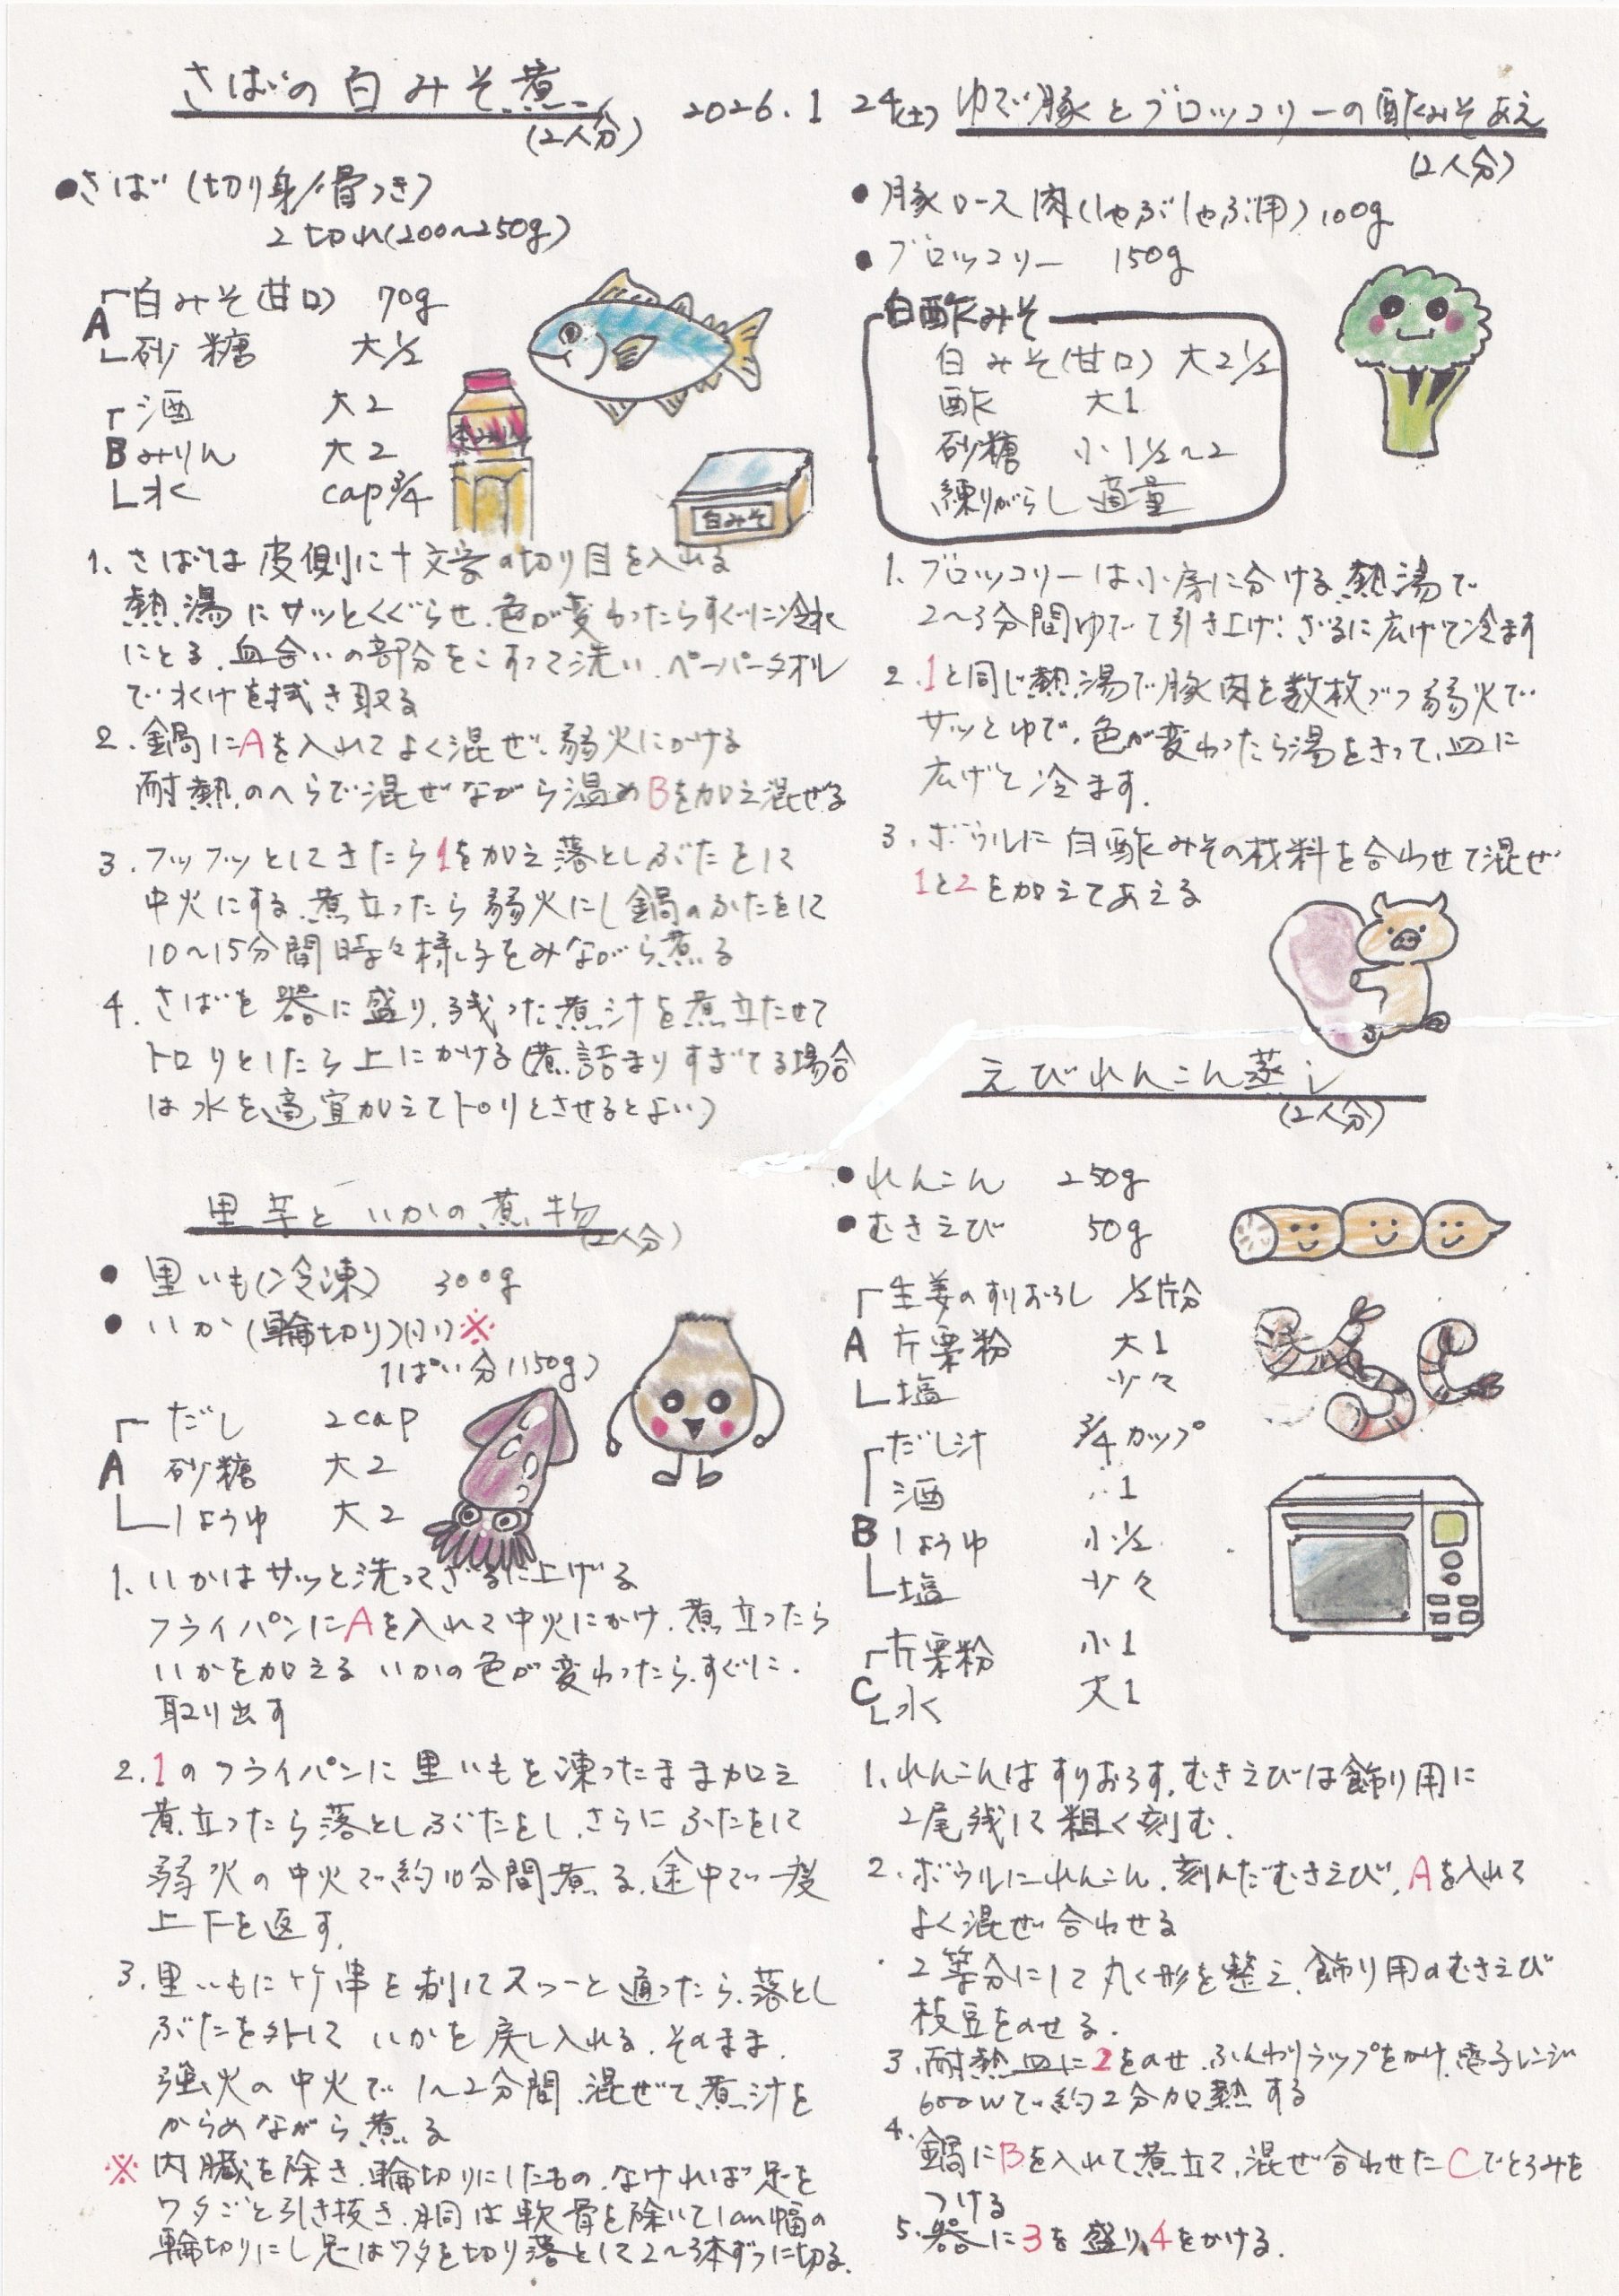 さばの白みそ煮
(2人分)
2026.1 24(土)
●さば(切り身/骨つき)
2切れ(200〜250g)
A
白みそ(甘口) 70g
砂糖 大1/2
B
酒 大2
みりん 大2
水 cap3/4
本みりん
白みそ
1. さばは皮側に十文字の切り目を入れる
熱湯にサッとくぐらせ、色が変わったらすぐに冷水
にとる、血合いの部分をこすって洗い、ペーパータオル
で水けを拭き取る
2. 鍋にAを入れてよく混ぜ、弱火にかける
耐熱のへらで混ぜながら温めBを加え混ぜる
3. フツフツとしてきたら1を加え落としぶたをして
中火にする、煮立ったら弱火にし鍋のふたをして
10〜15分間時々様子をみながら煮る
4. さばを器に盛り、残った煮汁を煮立たせて
トロリとしたら上にかける(煮詰まりすぎてる場合
は水を適宜加えてトロリとさせるとよい)
ゆで豚とブロッコリーの酢みそあえ
(2人分)
●豚ロース肉(しゃぶしゃぶ用) 100g
●ブロッコリー 150g
白酢みそ
白みそ(甘口) 大2 1/2
酢 大1
砂糖 小1 1/2〜2
練りがらし 適量
1. ブロッコリーは小房に分ける、熱湯で
2〜3分間ゆでて引き上げ、ざるに広げて冷ます
2. 1と同じ熱湯で豚肉を数枚づつ弱火で
サッとゆで、色が変わったら湯をきって、皿に
広げて冷ます.
3. ボウルに白酢みその材料を合わせて混ぜ
1と2を加えてあえる
里芋といかの煮物
(2人分)
●里いも(冷凍) 300g
●いか(輪切り)(小)※
1ぱい分(150g)
A
だし 2cap
砂糖 大2
しょうゆ 大2
1. いかはサッと洗ってざるに上げる
フライパンにAを入れて中火にかけ、煮立ったら
いかを加える いかの色が変わったら、すぐに.
取り出す
2. 1のフライパンに里いもを凍ったまま加え
煮立ったら落としぶたをし、さらにふたをして
弱火の中火で約10分間煮る、途中で一度
上下を返す.
3. 里いもに竹串を刺してスーッと通ったら、落とし
ぶたを外していかを戻し入れる、そのまま.
強火の中火で1〜2分間、混ぜて煮汁を
からめながら煮る
※内臓を除き、輪切りにしたもの、なければ足を
ワタごと引き抜き、胴は軟骨を除いて1cm幅の
輪切りにし足はワタを切り落として2〜3本ずつに切る.
えびれんこん蒸し
(2人分)
●れんこん 250g
●むきえび 50g
A
生姜のすりおろし 1/2片分
片栗粉 大1
塩 少々
B
だし汁 3/4カップ
酒 小1
しょうゆ 小1/2
塩 少々
C
片栗粉 小1
水 大1
1. れんこんはすりおろす、むきえびは飾り用に
2尾残して粗く刻む.
2. ボウルにれんこん、刻んだむきえび、Aを入れて
よく混ぜ合わせる
2等分にして丸く形を整え、飾り用のむきえび
枝豆をのせる.
3. 耐熱皿に2をのせ、ふんわりラップをかけ、電子レンジ
600Wで約2分加熱する
4. 鍋にBを入れて煮立て、混ぜ合わせたCでとろみを
つける
5. 器に3を盛り、4をかける.